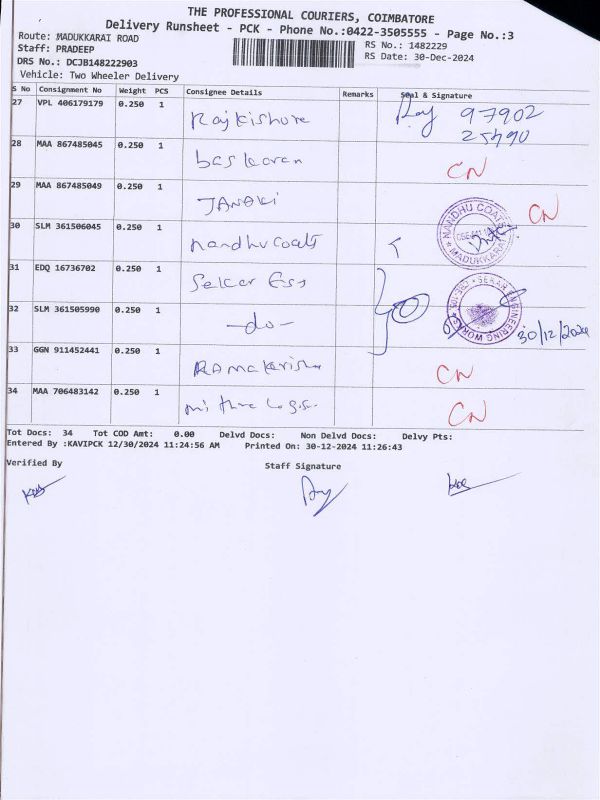 THE PROFESSIONAL COURIERS, COIMBATORE
Delivery Runsheet - PCK - Phone No.:0422-3505555 - Page No.:3
Route: MADUKKARAI ROAD
Staff: PRADEEP
DRS No.: DCJB148222903
Vehicle: Two Wheeler Delivery
RS No.: 1482229
RS Date: 30-Dec-2024
S No Consignment No Weight PCS Consignee Details Remarks Seal & Signature
27 VPL 406179179 0.250 1 Rajkishore 97902
28 MAA 867485045 0.250 1 baskaran CN
29 MAA 867485049 0.250 1 JANAKI CN
30 SLM 361506045 0.250 1 nandhu coats NANDHU COATS MADUKKARAI
31 EDQ 16736702 0.250 1 Sekar
32 SLM 361505990 0.250 1 -do- SEKAR ENGINEERING WORKS 30/12/2024
33 GGN 911452441 0.250 1 RAMAKrishna CN
34 MAA 706483142 0.250 1 mithra CN
Tot Docs: 34 Tot COD Amt: 0.00 Delvd Docs: Non Delvd Docs: Delvy Pts:
Entered By :KAVIPCK 12/30/2024 11:24:56 AM Printed On: 30-12-2024 11:26:43
Verified By Staff Signature